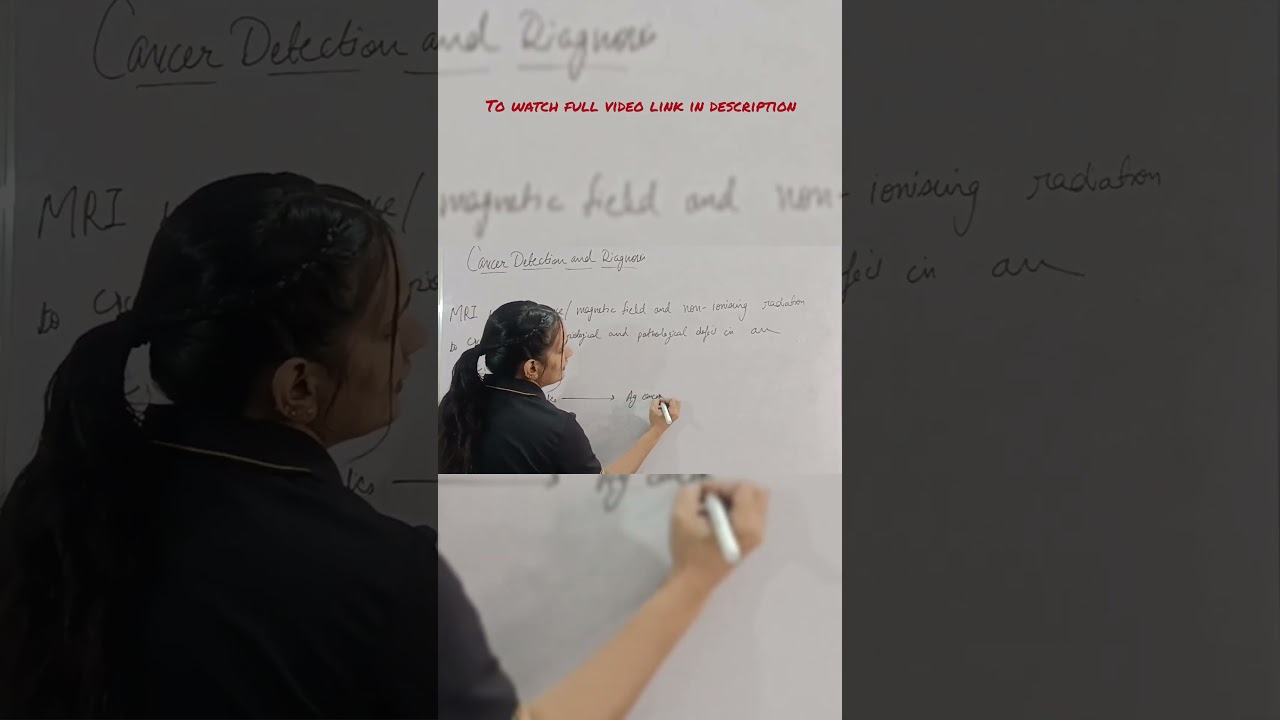 Cancer Detection and Diagnosis
To watch full video link in description
MRI magnetic field and non-ionising radiation
to and pathological defect in an
Ag